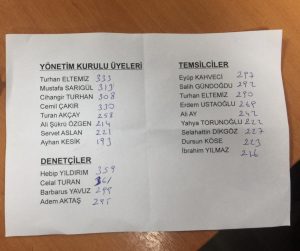 YÖNETİM KURULU ÜYELERİ
Turhan ELTEMİZ 333
Mustafa SARIGÜL 313
Cihangir TURHAN 308
Cemil ÇAKIR 330
Turan AKÇAY 258
Ali Şükrü ÖZGEN 214
Servet ASLAN 221
Ayhan KESİK 193
DENETÇİLER
Hebip YILDIRIM 359
Celal TURAN
Barbarus YAVUZ 299
Adem AKTAŞ 295
TEMSİLCİLER
Eyüp KAHVECİ 297
Salih GÜNDOĞDU 292
Turhan ELTEMİZ 290
Erdem USTAOĞLU 269
Ali AY 242
Yahya TORUNOĞLU 222
Selahattin DİKGÖZ 227
Dursun KÖSE 223
İbrahim YILMAZ 216